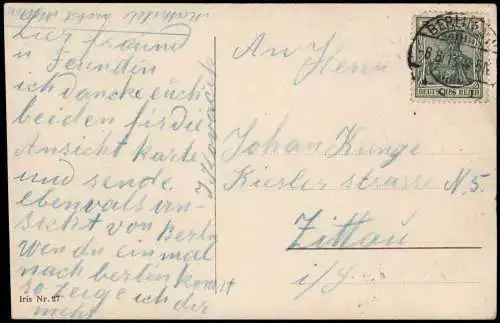 Lier fraund
u Feundin
ich dancke euch
beiden fir die
Ansicht karte
und sende
ebenvals an-
sicht von Berlg
Wen du einmal
nach berlin komst
so zeige ich dir
mehr
An
Herrn
Johan Kunze
Kusler strasse N. 5
Zittau
i/S.
BERLIN
DEUTSCHES REICH
Iris Nr. 27